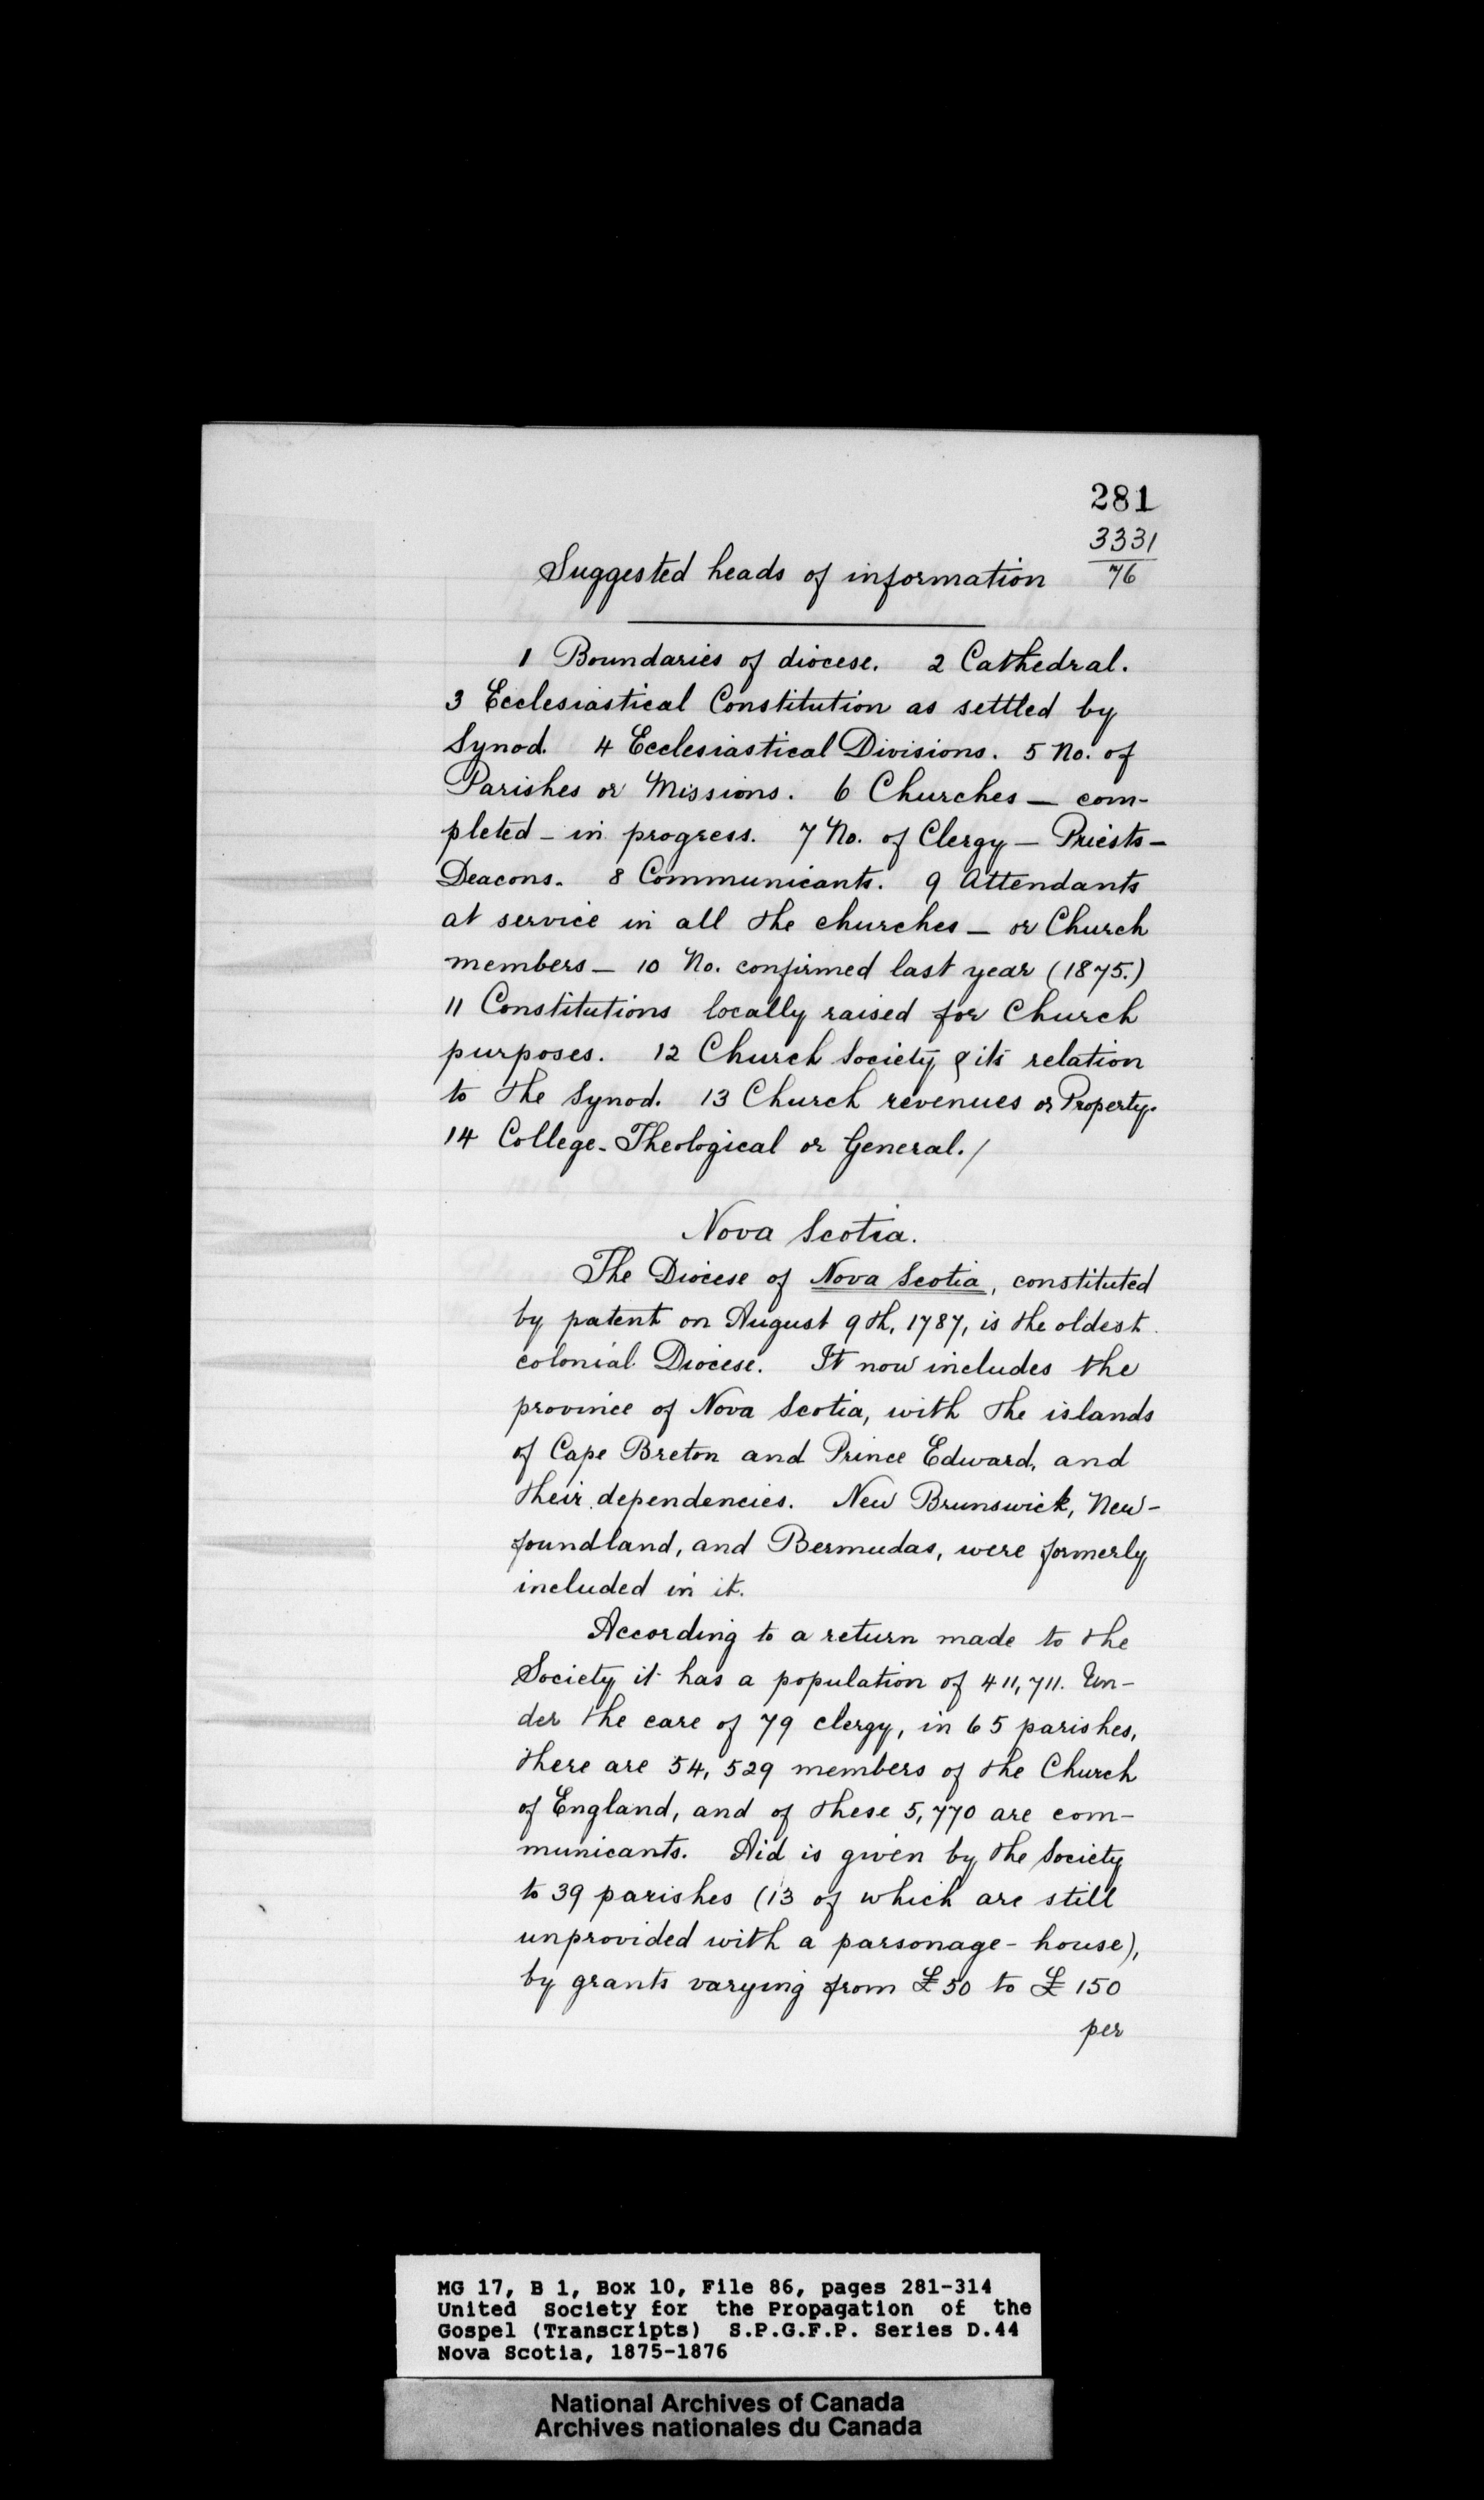 281
3331
76
Suggested heads of information
1 Boundaries of diocese. 2 Cathedral.
3 Ecclesiastical Constitution as settled by
Synod. 4 Ecclesiastical Divisions. 5 No. of
Parishes or Missions. 6 Churches — com-
pleted — in progress. 7 No. of Clergy — Priests —
Deacons. 8 Communicants. 9 Attendants
at service in all the churches — or Church
members — 10 No. confirmed last year (1875.)
11 Constitutions locally raised for Church
purposes. 12 Church Society & its relation
to the Synod. 13 Church revenues or Property.
14 College - Theological or General./
Nova Scotia.
The Diocese of Nova Scotia, constituted
by patent on August 9th, 1787, is the oldest
colonial Diocese. It now includes the
province of Nova Scotia, with the islands
of Cape Breton and Prince Edward, and
their dependencies. New Brunswick, New-
foundland, and Bermudas, were formerly
included in it.
According to a return made to the
Society it has a population of 411,711. Un-
der the care of 79 clergy, in 65 parishes,
there are 54,529 members of the Church
of England, and of these 5,770 are com-
municants. Aid is given by the Society
to 39 parishes (13 of which are still
unprovided with a parsonage-house),
by grants varying from £50 to £150
per
MG 17, B 1, Box 10, File 86, pages 281-314
United Society for the Propagation of the
Gospel (Transcripts) S.P.G.F.P. Series D.44
Nova Scotia, 1875-1876
National Archives of Canada
Archives nationales du Canada